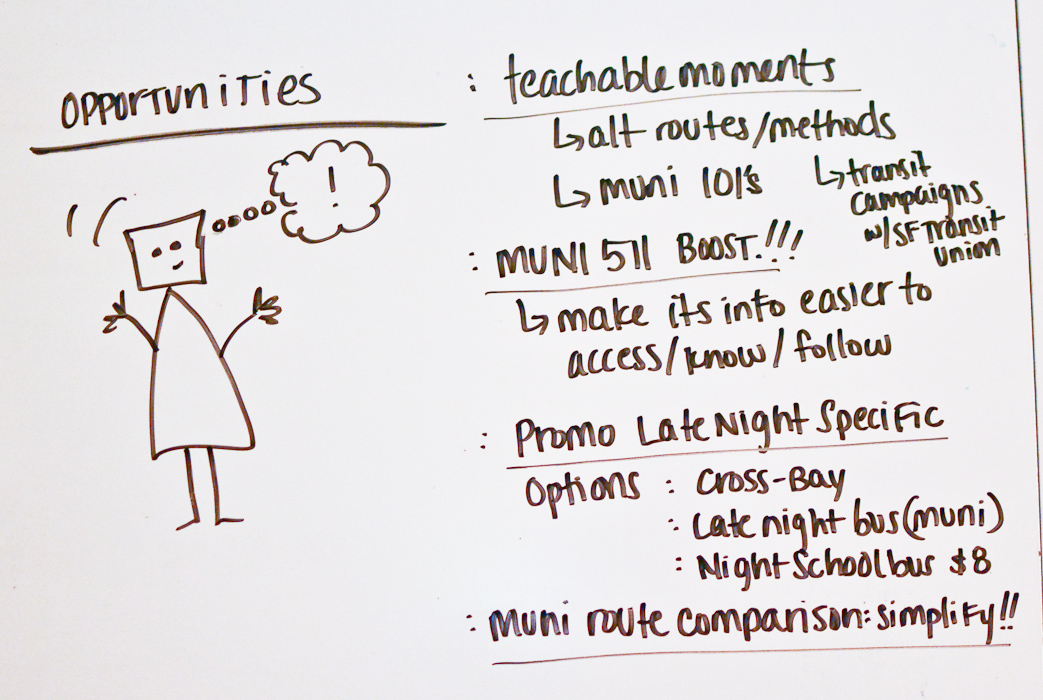 OPPORTUNITIES
!
: teachable moments
↳ alt routes/methods
↳ muni 101's
↳ transit
campaigns
w/SF Transit
union
: MUNI 511 BOOST!!!
↳ make its info easier to
access/know/follow
: Promo Late Night Specific
Options : Cross-Bay
: Late night bus (muni)
: Night School bus $8
: Muni route comparison: simplify!!